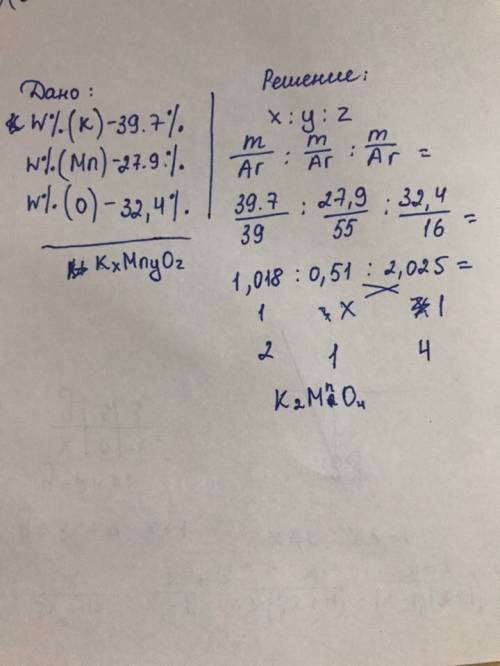 Дано:
W%(K)-39.7%.
W%(Mn)-27.9.%.
W%(O)-32,4%.
KxMnyOz
Решение:
x:y:z
m/Ar : m/Ar : m/Ar =
39.7/39 : 27,9/55 : 32,4/16 =
1,018 : 0,51 : 2,025 =
1 X 1
2 1 4
K2MnO4